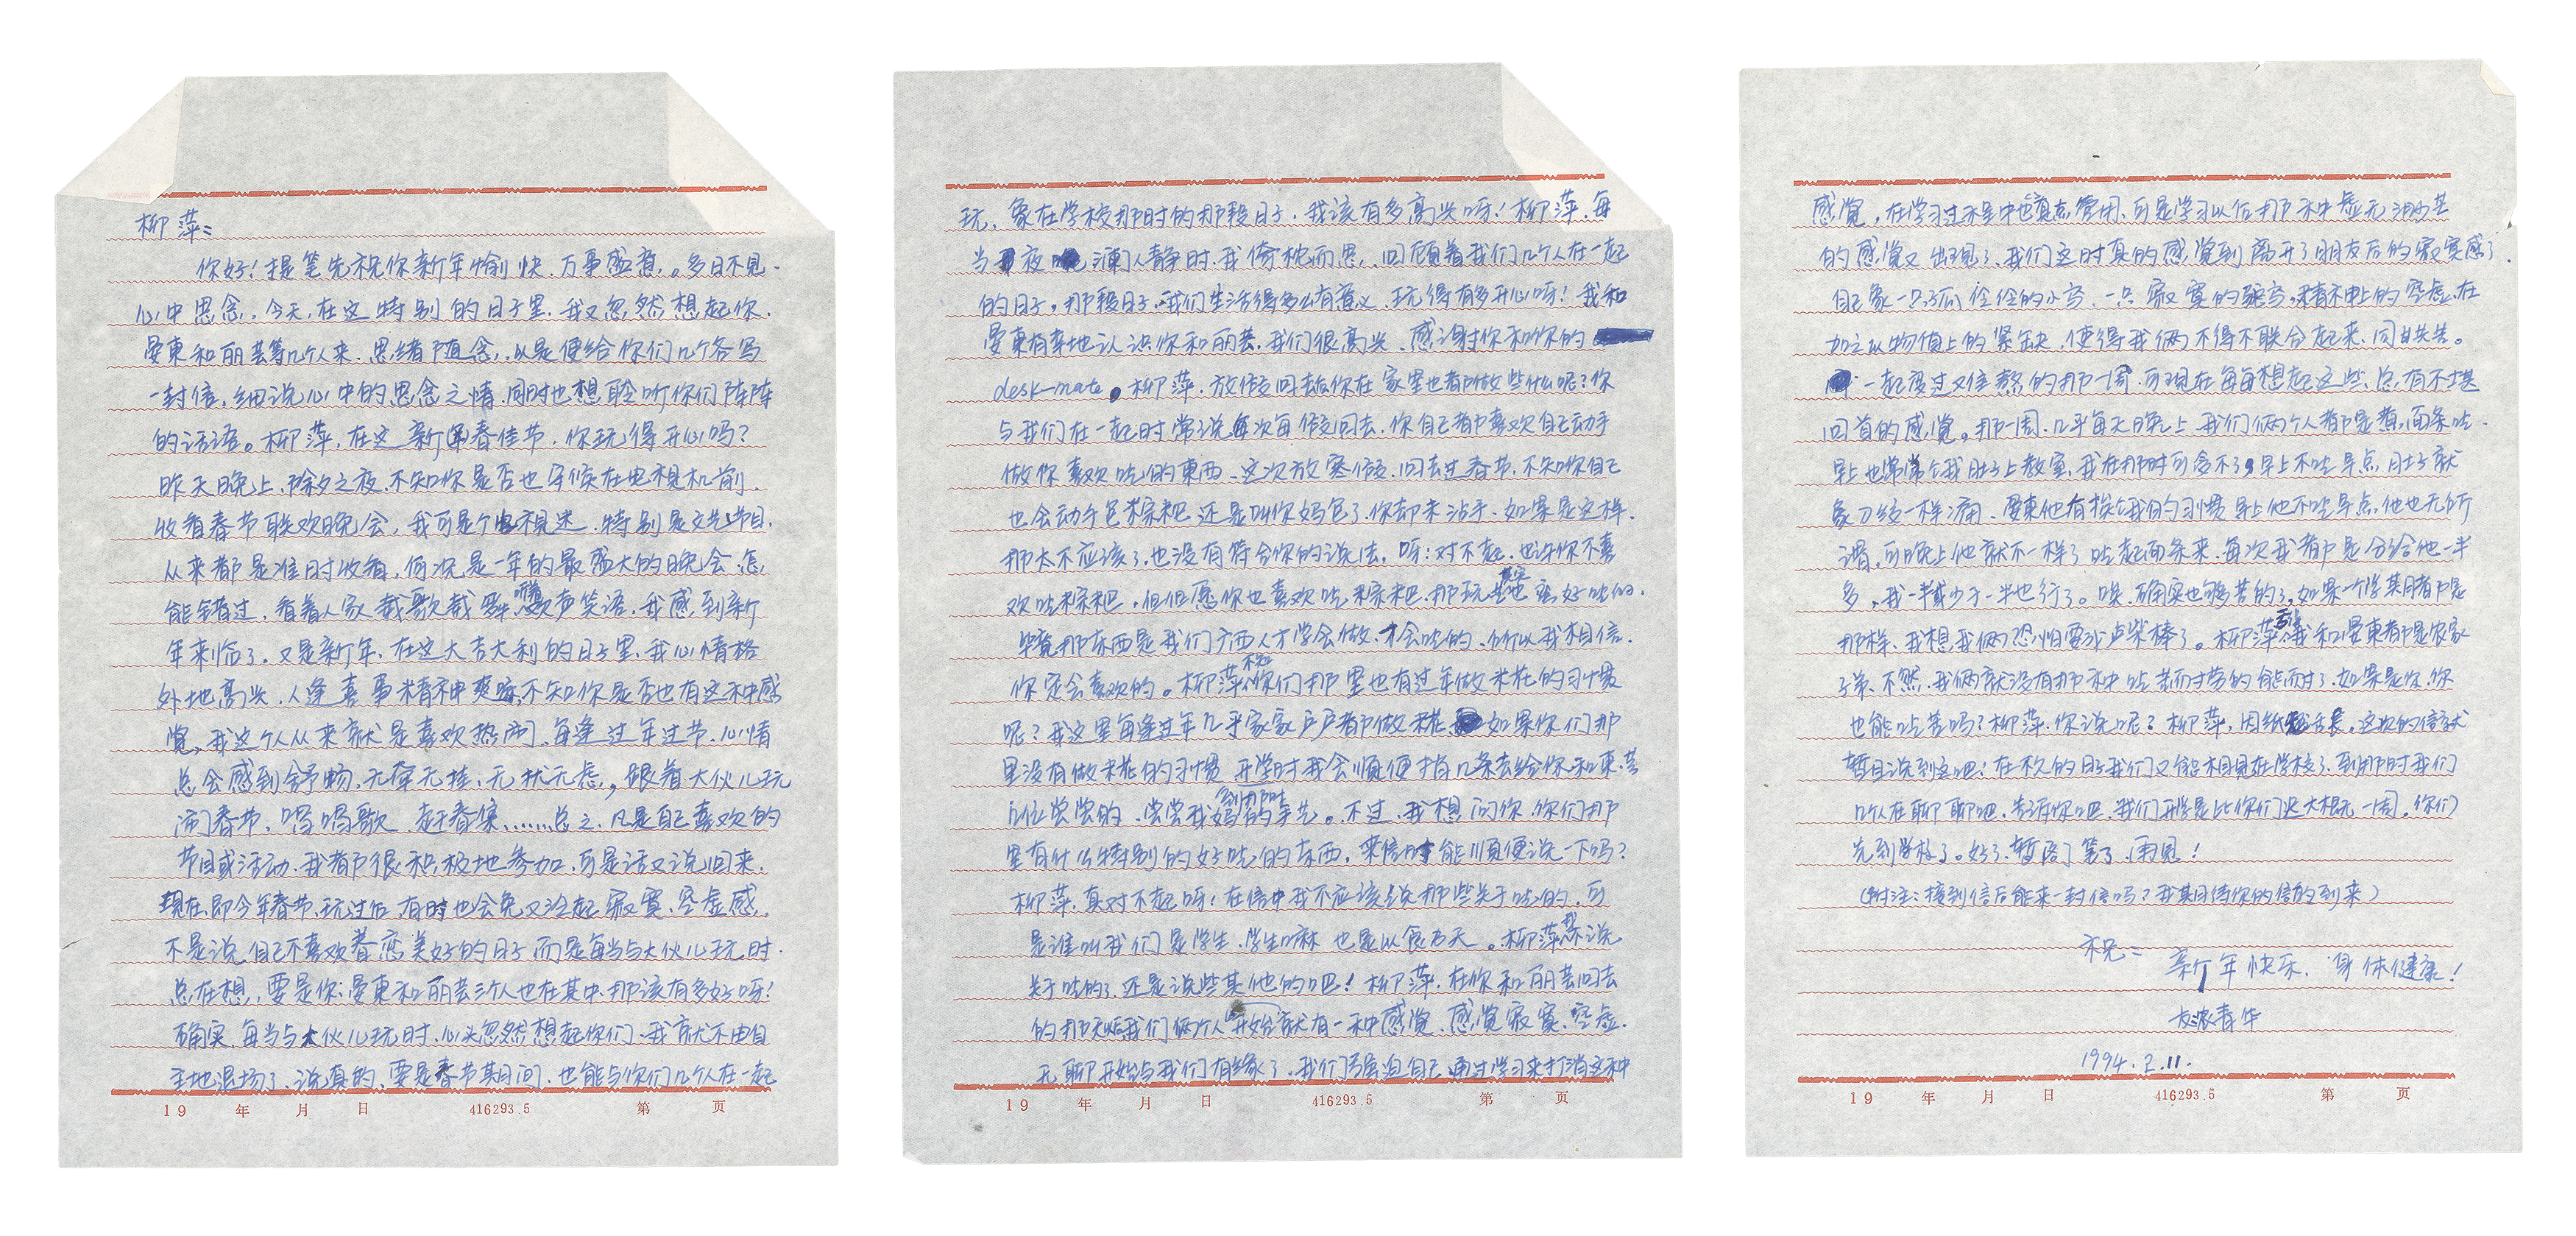 柳萍:
你好!提笔先祝你新年愉快,万事盛意。多日不见,
心中思念。今天,在这特别的日子里,我又忽然想起你、
晏東和丽芸等几个人来,思绪随念,以是便给你们几个各写
一封信,细说心中的思念之情,同时也想聆听你们阵阵
的话语。柳萍,在这新春佳节,你玩得开心吗?
昨天晚上,除夕之夜,不知你是否也守候在电视机前,
收看春节联欢晚会,我可是个电视迷,特别是文艺节目,
从来都是准时收看,何况是一年的最盛大的晚会,怎
能错过,看着人家载歌载舞,欢声笑语,我感到新
年来临了。又是新年,在这大吉大利的日子里,我心情格
外地高兴,人逢喜事精神爽嘛,不知你是否也有这种感
觉,我这个人从来就是喜欢热闹,每逢过年过节,心情
总会感到舒畅,无牵无挂、无忧无虑,跟着大伙儿玩
闹春节,唱唱歌、赶春集,……总之,凡是自己喜欢的
节目或活动,我都很积极地参加,可是话又说回来,
现在,即今年春节,玩过后,有时也会免又泛起寂寞、空虚感。
不是说自己不喜欢眷恋美好的日子,而是每当与大伙儿玩时,
总在想,要是你、晏東和丽芸三个人也在其中,那该有多好呀!
确实,每当与大伙儿玩时,心头忽然想起你们,我就不由自
主地退场了、说真的,要是春节期间,也能与你们几个人在一起
玩,象在学校那时的那段日子,我该有多高兴呀!柳萍,每
当夜澜人静时,我倚枕而思,回顾着我们几个人在一起
的日子,那段日子,我们生活得多么有意义,玩得有多开心呀!我和
晏東有幸地认识你和丽芸,我们很高兴,感谢对你和你的
desk-mate。柳萍,放假回去你在家里也都做些什么呢?你
与我们在一起时常说每次每假回去,你自己都喜欢自己动手
做你喜欢吃的東西,这次放寒假,回去过春节,不知你自己
也会动手包粽粑还是叫你妈包了,你却未沾手,如果是这样,
那太不应该了,也没有符合你的说法,呀!对不起,也许你不喜
欢吃粽粑,但但愿你也喜欢吃粽粑,那玩其实也蛮好吃的,
毕竟那东西是我们广西人才学会做,才会吃的,所以我相信,
你定会喜欢的。柳萍,不知你们那里也有过年做米花的习惯
呢?我这里每逢过年几乎家家户户都做米花,如果你们那
里没有做米花的习惯,开学时我会顺便捎几条去给你和東、芸
几位尝尝的,到那时尝尝我妈的手艺。不过,我想问你,你们那
里有什么特别的好吃的东西,来信时能顺便说一下吗?
柳萍,真对不起呀!在信中我不应该说那些关于吃的,可
是谁叫我们是学生,学生嘛,也是以食为天。柳萍,我不说
关于吃的了,还是说些其他的吧!柳萍,在你和丽芸回去
的那天始我们俩个人开始就有一种感觉、感觉寂寞、空虚,
无聊开始与我们有缘了,我们强迫自己通过学习来打消这种
感觉,在学习过程中也真点管用,可是学习以后那种虚无渺茫
的感觉又出现了,我们这时真的感觉到离开了朋友后的寂寞感了,
自己象一只孤伶伶的小鸟、一只寂寞的雁鸟,精神上的空虚,在
加之以物质上的紧缺,使得我俩不得不联合起来,同甘共苦。
一起度过难熬的那一周,可现在每每想起这些,总有不堪
回首的感觉。那一周,几乎每天晚上我们俩个人都是煮面条吃,
早上也常常饿肚子上教室,我在那时可舍不了,早上不吃早点,肚子就
象刀绞一样痛,晏東他有挨饿的习惯,早上他不吃早点,他也无所
谓,可晚上他就不一样了,吃起面条来,每次我都是分给他一半
多,我一半或少于一半也行了。唉,确实也够苦的了,如果一个学期都是
那样,我想我俩恐怕要成卢柴棒了。柳萍,可幸我和晏東都是农家
子弟,不然,我俩就没有那种吃苦而耐劳的能耐了,如果是你,你
也能吃苦吗?柳萍,你说呢?柳萍,因纸短话长,这次的信就
暂且说到这吧!在不久的日子我们又能相见在学校了,到那时我们
几个人在聊聊吧,告诉你吧,我们开学是比你们迟大概一周,你们
先到学校了。好了,暂停笔了,再见!
(附注:接到信后能来一封信吗?我期待你的信的到来)
祝:
新年快乐,身体健康!
友:浓春华
1994.2.11.
19 年 月 日 416293.5 第 页
19 年 月 日 416293.5 第 页
19 年 月 日 416293.5 第 页